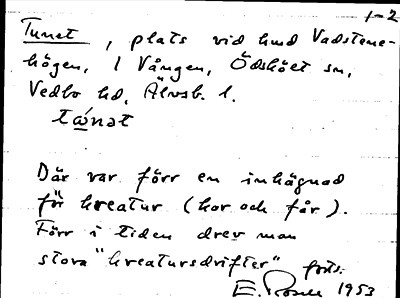 1-2
Tunet, plats vid hmd Vadstene-
högen, i Vången, Ödskölt sn,
Vedbo hd, Älvsb. l.
Där var förr en inhägnad
för kreatur (kor och får).
Förr i tiden drev man
stora "kreatursdrifter" forts.
E. Rosell 1953